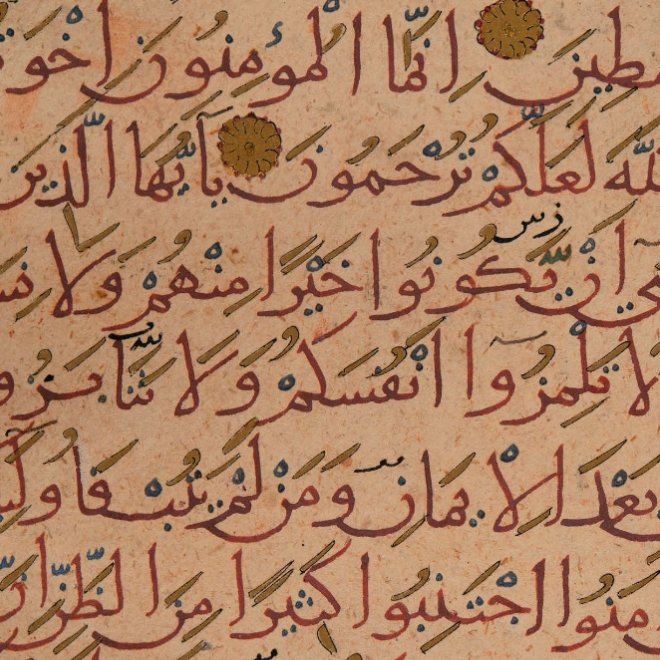 سِطِينَ اِنَّمَا الْمُؤْمِنُونَ اِخْوَةٌ
اللّٰهَ لَعَلَّكُمْ تُرْحَمُونَ يَآ اَيُّهَا الَّذِينَ
اَنْ يَكُونُوا خَيْرًا مِنْهُمْ وَلَا نِسَا
لَا تَلْمِزُوا اَنْفُسَكُمْ وَلَا تَنَابَزُو
بَعْدَ الْاِيمَانِ وَمَنْ لَمْ يَتُبْ فَاُولٓئِ
مَنُوا اجْتَنِبُوا كَثِيرًا مِنَ الظَّنِّ اِنَّ